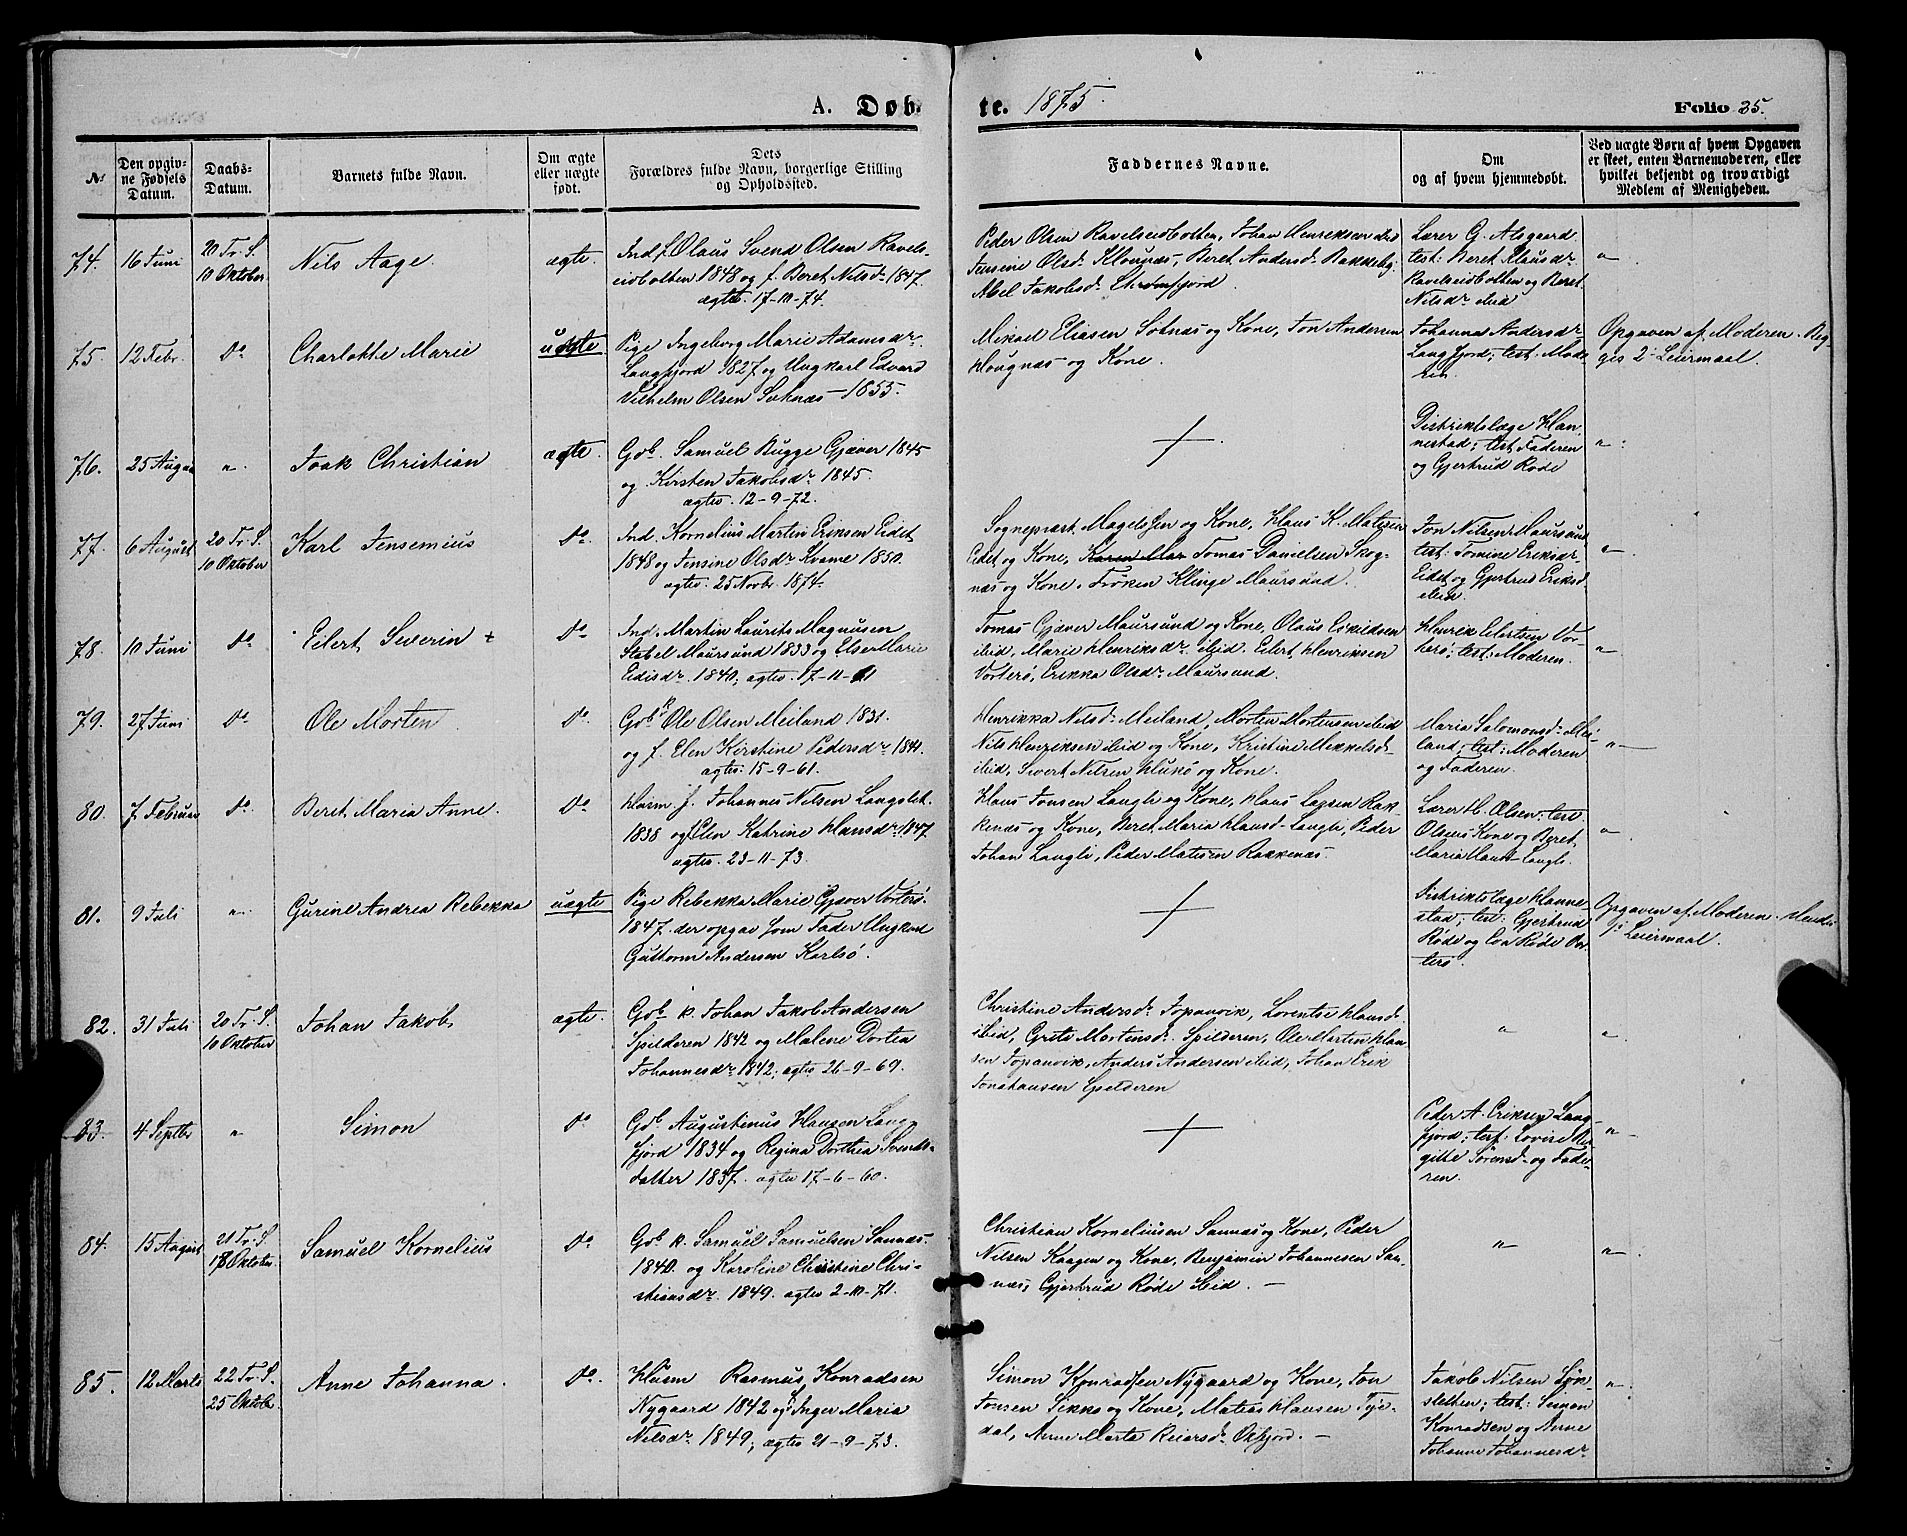 A. Døbte. 1875.
Folio 35.
№
Den opgivne Fødsels Datum.
Daabs-Datum.
Barnets fulde Navn.
Om ægte eller uægte født.
Dets Forældres fulde Navn, borgerlige Stilling og Opholdssted.
Faddernes Navne.
Om og af hvem hjemmedøbt.
Ved uægte Børn af hvem Opgaven er skeet, enten Barnemoderen, eller hvilket bekjendt og troværdigt Medlem af Menigheden.
74.
16 Juni
20 Tr. S.
10 Oktober
Nils Aage
ægte.
Ind. f. Olaus Svend Olsen Ravels-
eidbotten 1848 og f. Beret Nilsdr. 1847.
agtv. 17-10-74.
Peder Olsen Ravelseidbotten, Johan Henriksen ibid
Jensine Olsd. Klounæs, Beret Andersd. Bakkeby,
Abel Jakobsd.
Lærer G. Alsgaard
test: Beret Klausdr.
Ravelseidbotten og Beret
Nilsdr. ibid
"
75.
12 Febr.
Do
Charlotte Marie
uægte
Pige Ingeborg Marie Adamsdr.
Langfjord 1827 og Ungkarl Edvard
Vilhelm Olsen Sotnæs - 1855.
Mikael Eliasen Sotnæs og Kone, Jon Andersen
Hougnæs og Kone.
Johanna Andersdr.
Langfjord; test: Mode-
ren.
Opgaven af Moderen. Beg-
ges 2. Leiermaal.
76.
25 August
"
Isak Christian
ægte.
Gdb. Samuel Bugge Gjæver 1845
og Kirsten Jakobsdr. 1845.
agtv. 12-9-72.
Distriktslæge Han-
nestad; test: Faderen
og Gjertrud Røde
"
77.
6 August
20 Tr. S.
10 Oktober
Karl Jensenius
Do
Ind. Kornelius Martin Eriksen Eidet
1848 og Jensine Olsdr. Kvame 1850.
agtv. 25 Novbr. 1874.
Sognepræst Magelssen og Kone, Klaus K. Matisen
Eidet og Kone, Karen Mar Tomas Danielsen Skog-
næs og Kone, Frøken Klinge Maursund.
Jon Nilsen Maursund
test: Tomine Eriksdr.
Eidet og Gjertrud Eriksd.
ibid.
"
78.
10 Juni
Do
Eilert Severin +
Do
Ind. Martin Laurits Magnusen
Stabel Maursund 1833 og Else Marie
Edisdr. 1840; agtv. 17-11-61
Tomas Gjæver Maursund og Kone, Olaus Eskildsen
ibid, Marie Henriksdr. ibid. Eilert Henriksen
Vorterø, Erikka Olsdr. Maursund.
Henrik Eilertsen Vor-
terø; test: Moderen.
"
79.
27 Juni
Do
Ole Morten
Do
Gdb. k. Ole Olsen Meiland 1831.
og f. Elen Kirstine Pedersdr. 1841.
agtv: 15-9-61.
Henrikka Nilsd. Meiland, Morten Mortensen ibid
Nils Henriksen ibid og Kone, Kristine Mikkelsd.
ibid, Sivert Nilsen Hukø og Kone.
Maria Salomonsd. Mei-
land; test: Moderen
og Faderen.
"
80.
7 Februar
Do
Beret Maria Anne.
Do
Husm. f. Johannes Nilsen Langslet
1838 og f. Elen Katrine Hansdr. 1847
agtv. 23-11-73.
Klaus Jonsen Langli og Kone, Hans Larsen Rak-
kenæs og Kone, Beret Maria Hansd. Langli, Peder
Johan Langli, Peder Matisen Rakkenæs.
Lærer H. Olsen; test:
Olsens Kone og Beret
Maria Hansd. Langli.
"
81.
9 Juli
"
Gurine Andrea Rebekka
uægte
Pige Rebekka Marie Gjæver Vorterø.
1847. der opgav som Fader Ungkarl
Guttorm Andersen Karlsø.
Distriktslæge Hanne-
stad; test: Gjertrud
Røde og Eva Røde Vor-
terø.
Opgaven af Moderen.
1. Leiermaal.
82.
31 Juli
20 Tr. S.
10 Oktober
Johan Jakob.
ægte.
Gdb. k. Johan Jakob Andersen
Spilderen 1842 og Malene Dortea
Johannesdr. 1842; agtv 26-9-69.
Christine Andersd. Jopanvik, Lorentse Hansd.
ibid, Grete Mortensd. Spilderen, Ole Martin Han-
sen Jopanvik, Anders Andersen ibid, Johan Erik
Jonahansen Spilderen
"
"
83.
4 Septbr
"
Simon
Do
Gdb. Augustinus Hansen Lang-
fjord 1834 og Regina Dorthea Svends-
datter 1837. agtv 17-6-60.
Peder A. Eriksen Lang-
fjord; test: Lovise Bir-
gitte Sørensd. og Fade-
ren.
"
84.
15 August
21 Tr. S.
Oktober.
Samuel Kornelius
Do
Gdb k. Samuel Samuelsen Sannæs
1840. og Karoline Christine Chri-
stiansdr. 1849. agtv 2-10-71.
Christian Korneliusen Sannæs og Kone, Peder
Nilsen Kaagen og Kone, Benjamin Johannesen San-
næs, Gjertrud Røde ibid.
"
"
85.
12 Marts
22 Tr. S.
25 Oktobr.
Anne Johanna.
Do.
Husm Rasmus Konradsen
Nygaard 1842 og Inger Maria
Nilsdr. 1849; agtv 21-9-73.
Simon Konradsen Nygaard og Kone, Jon
Jonsen Sikka og Kone, Matias Hansen Tyte-
dal, Anne Marta Reiersd. Oxfjord.
Jakob Nilsen Sør-
sletten; test: Simon
Konradsen og Anne
Johanna Johannesdr.
"